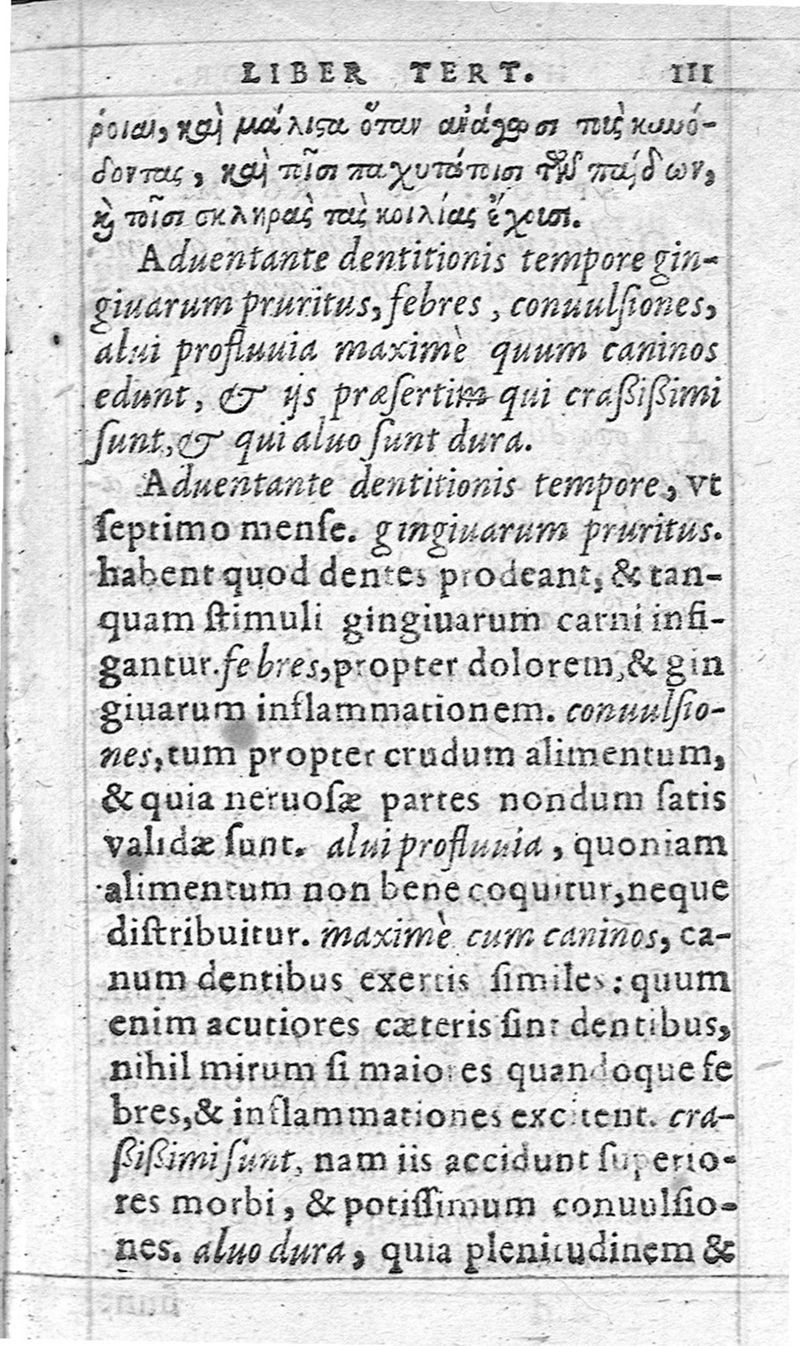 LIBER TERT. III
ῥοιαι, καὶ μάλιστα ὅταν ἀνάγωσι τοὺς κυνό-
δοντας, καὶ τοῖσι παχυτάτοισι τῶν παίδων,
καὶ τοῖσι σκληρὰς τὰς κοιλίας ἔχουσι.
Aduentante dentitionis tempore gin-
giuarum pruritus, febres, conuulſiones,
alui profluuia maximè quum caninos
edunt, & ijs præſertim qui craßißimi
ſunt, & qui aluo ſunt dura.
Aduentante dentitionis tempore, vt
ſeptimo menſe. gingiuarum pruritus.
habent quod dentes prodeant, & tan-
quam ſtimuli gingiuarum carni infi-
gantur. febres, propter dolorem, & gin
giuarum inflammationem. conuulſio-
nes, tum propter crudum alimentum,
& quia neruoſæ partes nondum ſatis
validæ ſunt. alui profluuia, quoniam
alimentum non bene coquitur, neque
diſtribuitur. maximè cum caninos, ca-
num dentibus exertis ſimiles: quum
enim acutiores cæteris ſint dentibus,
nihil mirum ſi maiores quandoque fe
bres, & inflammationes excitent. cra-
ßißimi ſunt, nam iis accidunt ſuperio-
res morbi, & potiſſimum conuulſio-
nes. aluo dura, quia plenitudinem &